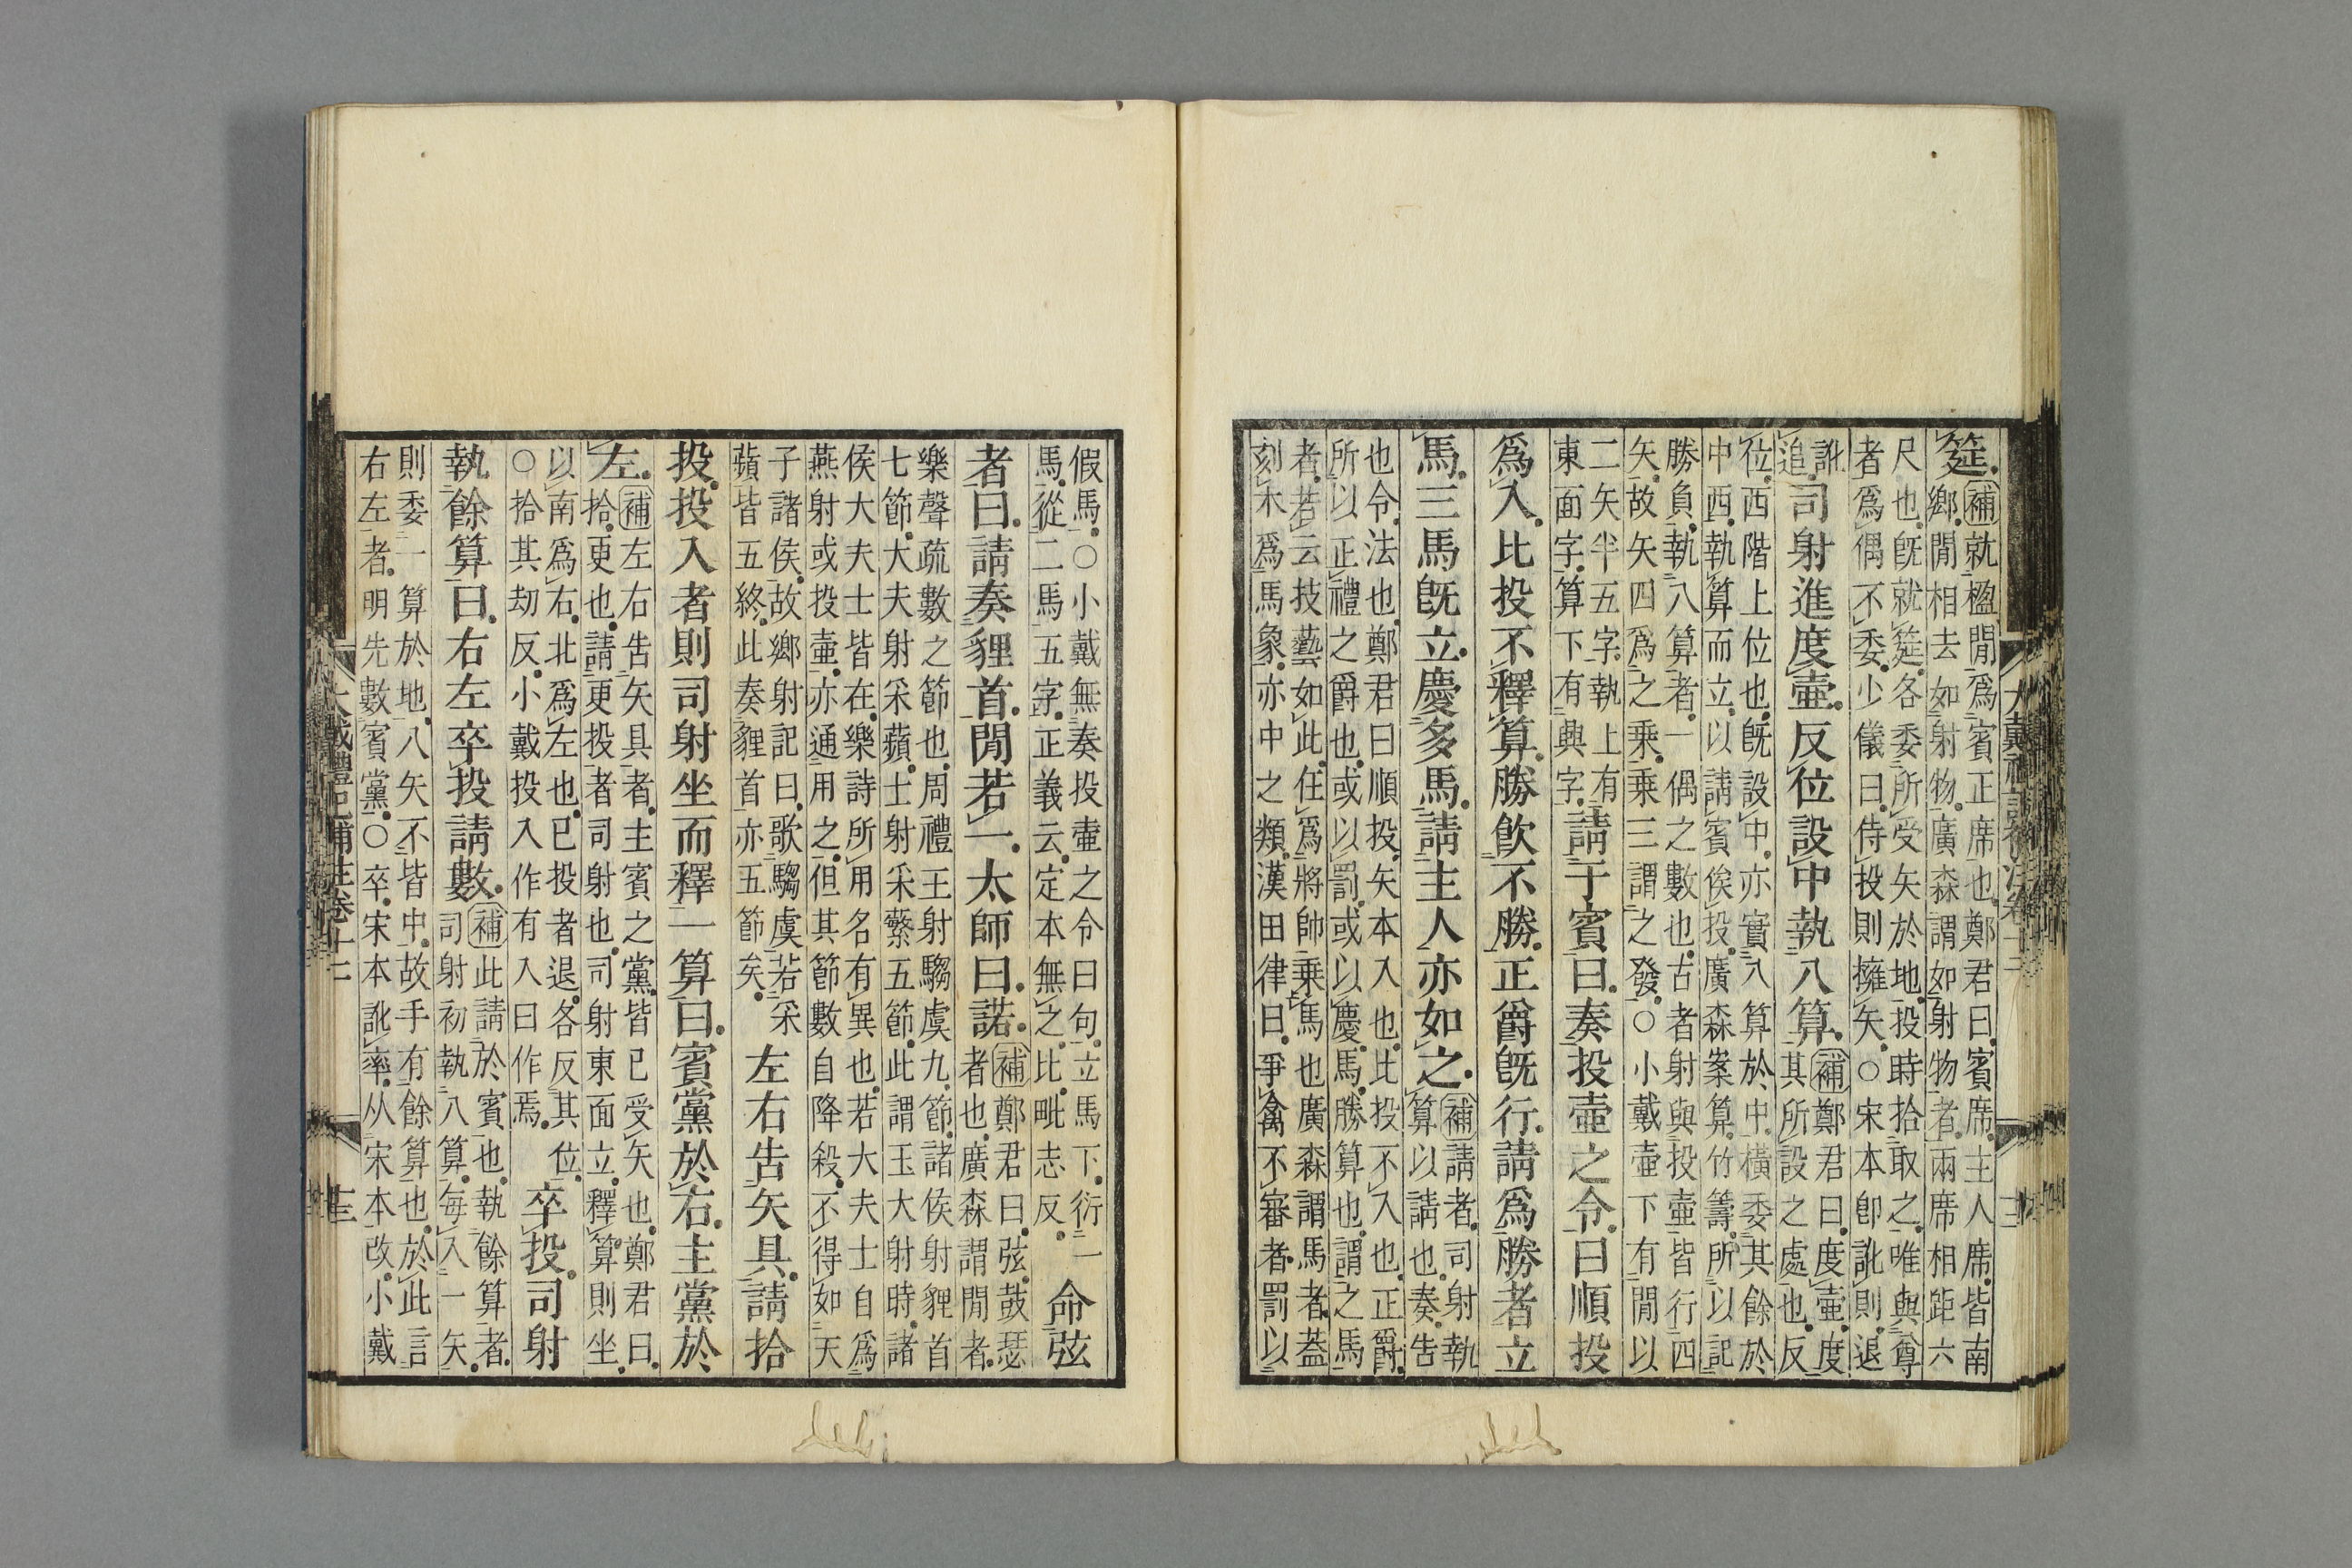 筵補就楹閒爲賓正席也鄭君曰賓席主人席皆南
鄉閒相去如射物廣森謂如射物者兩席相距六
尺也旣就筵各委所受矢於地投時拾取之唯與尊
者爲偶不委少儀曰侍投則擁矢○宋本卽訛則退
訛追司射進度壷反位設中執八算補鄭君曰度壷度
其所設之處也反
位西階上位也旣設中亦實八算於中橫委其餘於
中西執算而立以請賓俟投廣森案算竹籌所以記
勝負執八算者一偶之數也古者射與投壷皆行四
矢故矢四爲之乘乘三謂之發○小戴壷下有閒以
二矢半五字執上有
東面字算下有興字請于賓曰奏投壷之令曰順投
爲入比投不釋算勝飮不勝正爵旣行請爲勝者立
馬三馬旣立慶多馬請主人亦如之補請者司射執
算以請也奏告
也令法也鄭君曰順投矢本入也比投不入也正爵
所以正禮之爵也或以罰或以慶馬勝算也謂之馬
者若云技藝如此任爲將帥乘馬也廣森謂馬者葢
刻木爲馬象亦中之類漢田律曰爭禽不審者罰以
大戴禮記補注卷十二
假馬○小戴無奏投壷之令曰句立馬下衍一
馬從二馬五字正義云定本無之比毗志反命弦
者曰請奏貍首閒若一太師曰諾補鄭君曰弦鼓瑟
者也廣森謂閒者
樂聲疏數之節也周禮王射騶虞九節諸侯射貍首
七節大夫射采蘋士射采蘩五節此謂玉大射時諸
侯大夫士皆在樂詩所用名有異也若大夫士自爲
燕射或投壷亦通用之但其節數自降殺不得如天
子諸侯故鄉射記曰歌騶虞若采
蘋皆五終此奏貍首亦五節矣左右告矢具請拾
投投入者則司射坐而釋一算曰賓黨於右主黨於
左補左右告矢具者主賓之黨皆已受矢也鄭君曰
拾更也請更投者司射也司射東面立釋算則坐
以南爲右北爲左也已投者退各反其位
○拾其劫反小戴投入作有入曰作焉卒投司射
執餘算曰右左卒投請數補此請於賓也執餘算者
司射初執八算每入一矢
則委一算於地八矢不皆中故手有餘算也於此言
右左者明先數賓黨○卒宋本訛率从宋本改小戴
大戴禮記補注卷十二